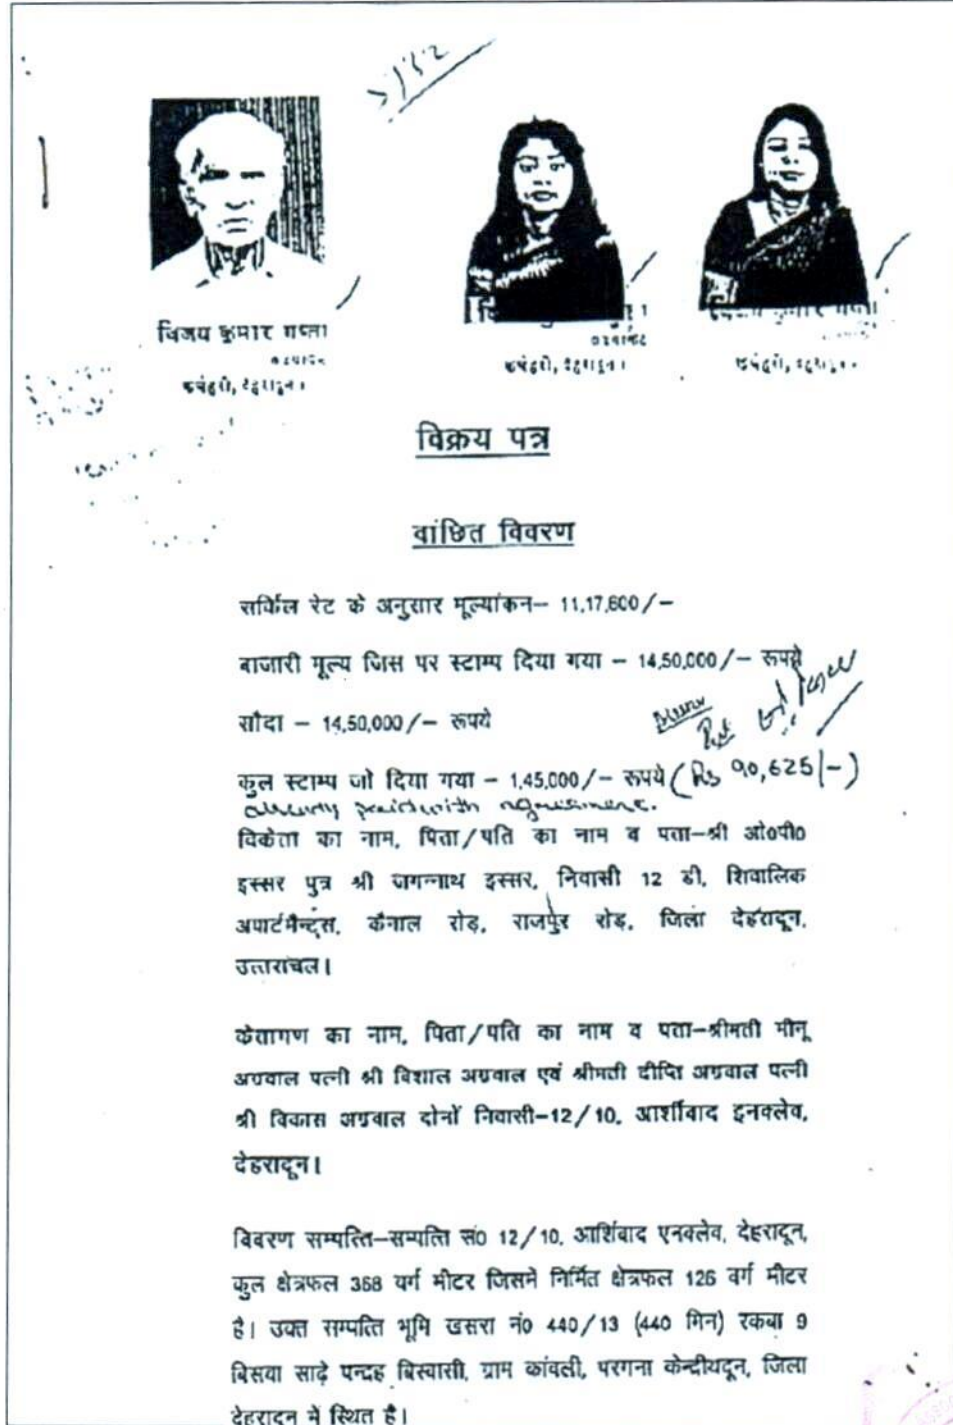 विजय कुमार गुप्ता
कचहरी, देहरादून।
कचहरी, देहरादून।
कचहरी, देहरादून।
विक्रय पत्र
वांछित विवरण
सर्किल रेट के अनुसार मूल्यांकन– 11,17,600/–
बाजारी मूल्य जिस पर स्टाम्प दिया गया – 14,50,000/– रूपये
सौदा – 14,50,000/– रूपये
कुल स्टाम्प जो दिया गया – 1,45,000/– रूपये (Rs 90,625/–)
already paid with agreement.
विकेता का नाम, पिता/पति का नाम व पता–श्री ओ०पी०
इस्सर पुत्र श्री जगन्नाथ इस्सर, निवासी 12 डी, शिवालिक
अपार्टमैन्ट्स, कैनाल रोड़, राजपुर रोड़, जिला देहरादून,
उत्तरांचल।
केतागण का नाम, पिता/पति का नाम व पता–श्रीमती मीनू
अग्रवाल पत्नी श्री विशाल अग्रवाल एवं श्रीमती दीप्ति अग्रवाल पत्नी
श्री विकास अग्रवाल दोनों निवासी–12/10, आर्शीवाद इनक्लेव,
देहरादून।
विवरण सम्पत्ति–सम्पत्ति सं० 12/10, आर्शिवाद एनक्लेव, देहरादून,
कुल क्षेत्रफल 368 वर्ग मीटर जिसमें निर्मित क्षेत्रफल 126 वर्ग मीटर
है। उक्त सम्पत्ति भूमि खसरा नं० 440/13 (440 मिन) रकबा 9
बिसवा साढ़े पन्द्रह बिस्वासी, ग्राम कांवली, परगना केन्द्रीयदून, जिला
देहरादून में स्थित है।